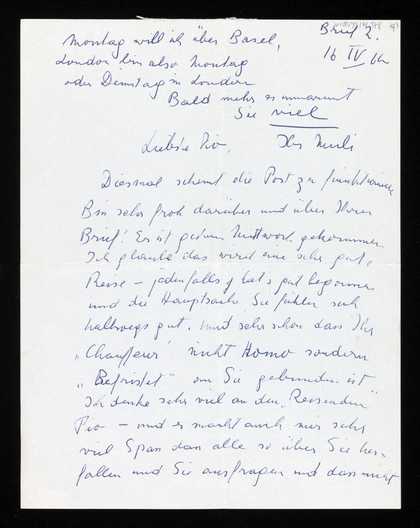 Montag will ich über Basel,
London bin also Montag
oder Dienstag in London
Bald mehr es umarmt
Sie viel
Brief 2.
16 IV
Liebster Pio,
Ihr
Diesmal scheint die Post zu funktionieren
Bin sehr froh darüber und über Ihren
Brief! Er ist gestern Mittwoch gekommen
Ich glaube das wird eine sehr gute
Reise – jedenfalls hat's gut begonnen
und die Hauptsache Sie fühlen sich
halbwegs gut. Und sehr schön dass Ihr
„Chauffeur" nicht Homo sondern
„Befristet" an Sie gebunden ist
Ich denke sehr viel an den Reisenden
Pio – und es macht auch mir sehr
viel Spass dass alle so über Sie her-
fallen und Sie ausfragen und dass